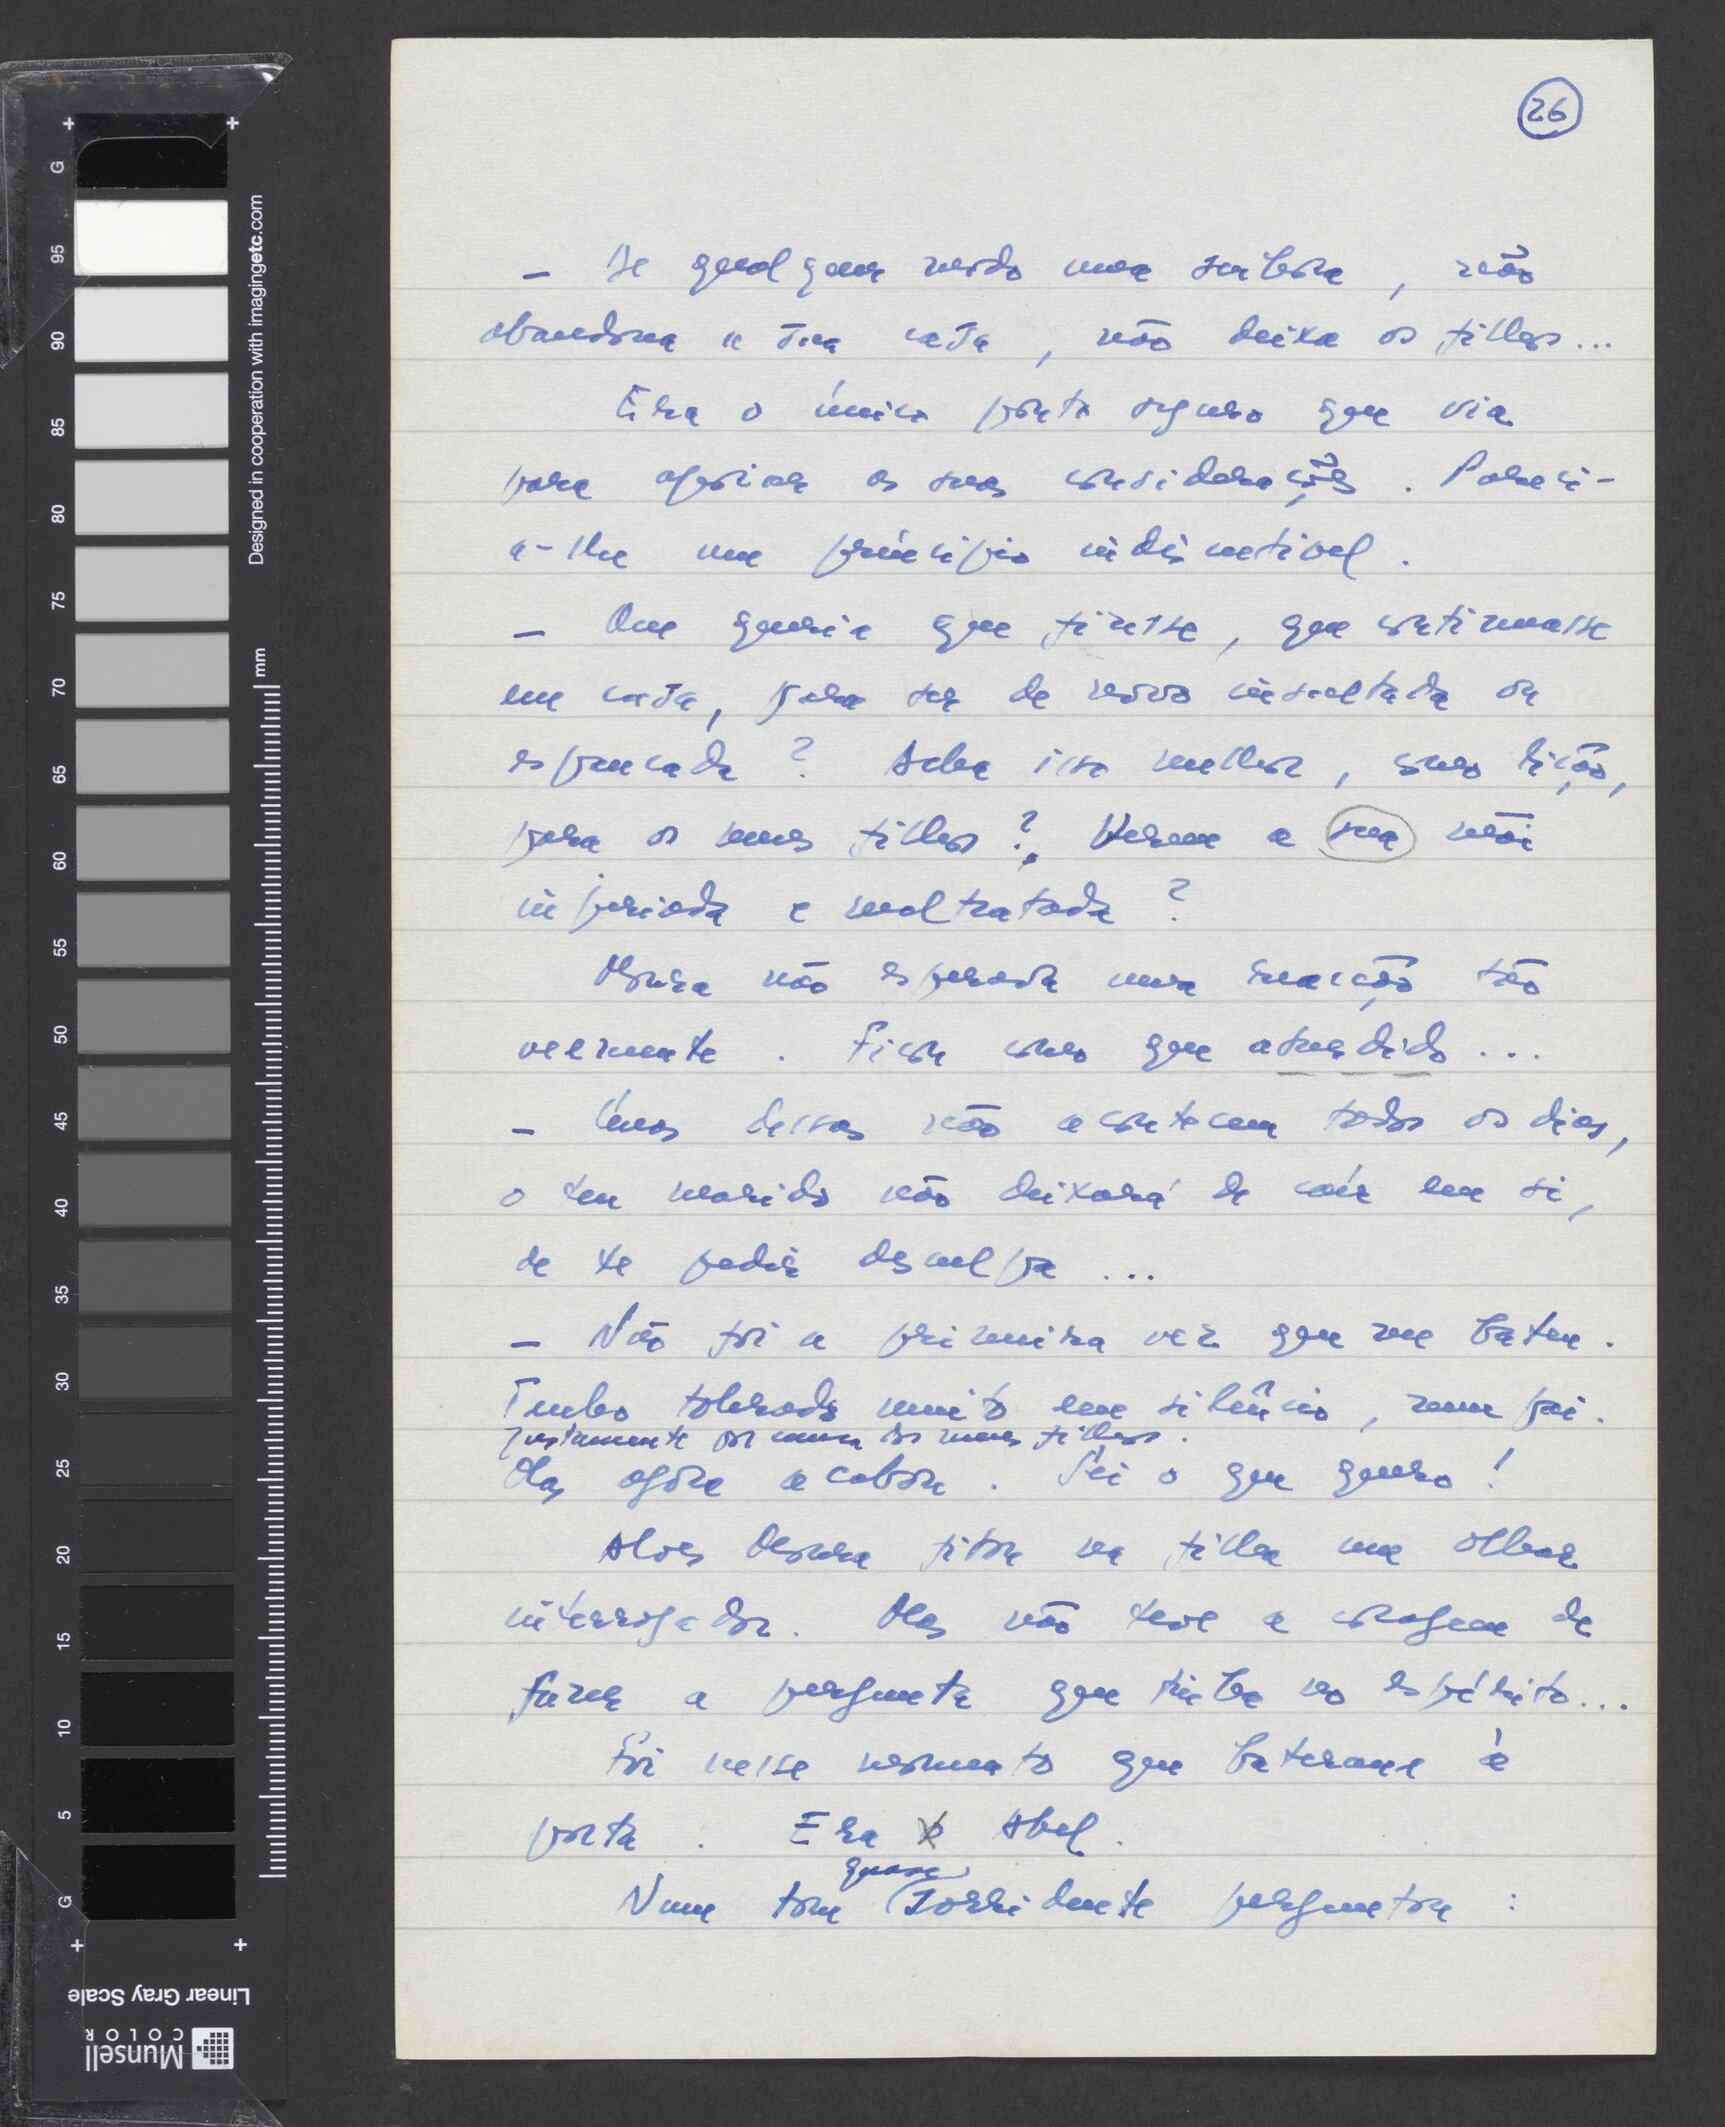 26
– De qualquer modo uma senhora, não
abandona a sua casa, não deixa os filhos...
Era o único ponto seguro que via
para apoiar as suas considerações. Pareci-
a-lhe um princípio indiscutível.
– Que queria que fizesse, que continuasse
em casa, para ser de novo insultada ou
espancada? Acha isso melhor, como lição,
para os meus filhos? Verem a sua mãi
injuriada e maltratada?
Moura não esperava uma reacção tão
veemente. Ficou como que aturdido...
– Cenas dessas não acontecem todos os dias,
o teu marido não deixará de caír em si,
de te pedir desculpa...
– Não foi a primeira vez que me bateu.
Tenho tolerado muito em silêncio, meu pai.
justamente por causa dos meus filhos.
Mas agora acabou. Sei o que quero!
Alves Moura fitou na filha um olhar
interrogador. Mas não teve a coragem de
fazer a pergunta que tinha no espírito...
Foi nesse momento que bateram à
porta. Era o Abel.
quase
Num tom sorridente perguntou:
G
95
90
85
80
75
70
65
60
55
50
45
40
35
30
25
20
15
10
5
G
Designed in cooperation with imagingetc.com
mm
Linear Gray Scale
Munsell
COLOR